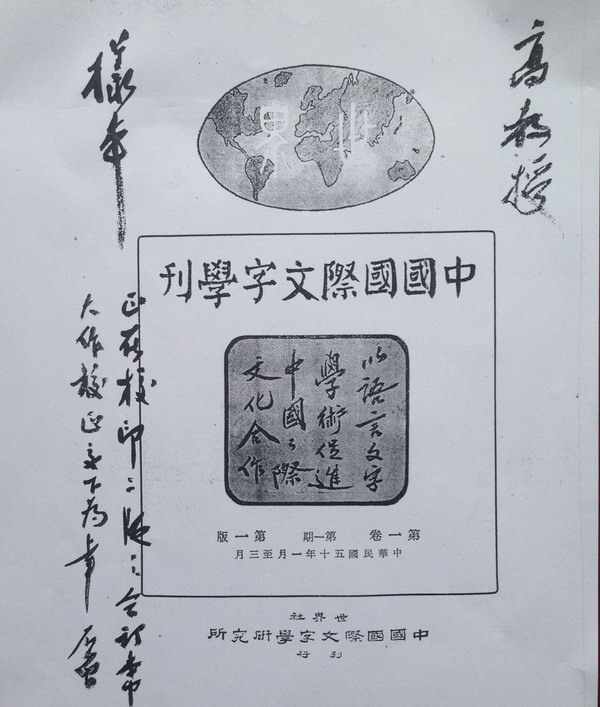 高教授
世界
中國國際文字學刊
以語言文字
學術促進
中國々際
文化合作
第一卷 第一期 第一版
中華民國五十年一月至三月
世界社
中國國際文字學研究所
刊行
樣本
正在校印 合訂本
大作校正交下為幸 石曾